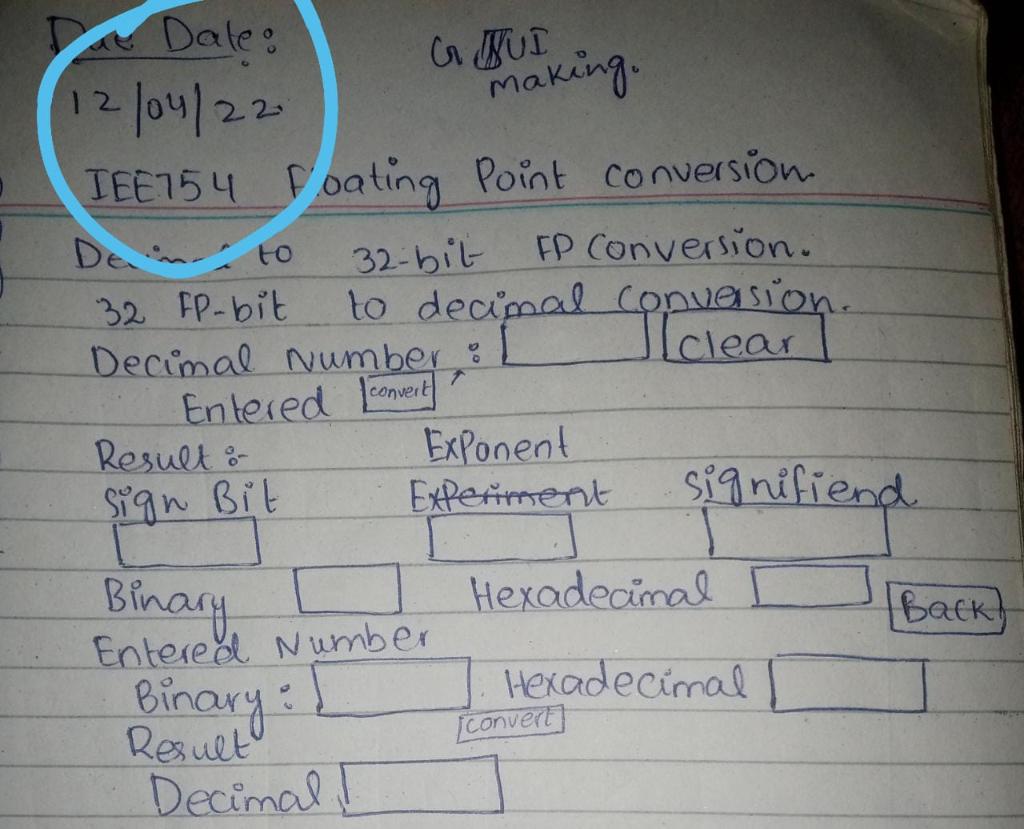 Due Date:
GUI
making.
12/04/22.
IEE754 Floating Point conversion.
to 32-bit FP Conversion.
32 FP-bit to decimal conversion.
Decimal Number : clear
Entered convert
Result :-
Exponent
Sign Bit Experiment signifiend
Binary Hexadecimal Back
Entered Number
Binary : Hexadecimal
convert
Result
Decimal